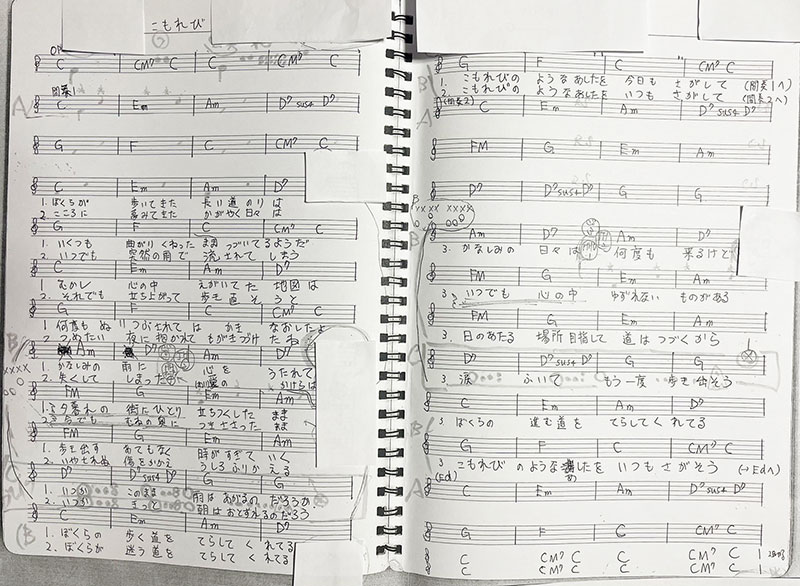 こもれび
OP
C CM7 C C CM7 C
間奏1
A C Em Am D7 sus4
G F C CM7 C
C Em Am D7
1. ぼくらが 歩いてきた 長い道のりは
2. こころに 畳みてきた かがやく日々は
G F C CM7 C
1. いくつも 曲がりくねった まま つづいてるようだ
2. いつでも 突然の雨で 流されてしまう
C Em Am D7
1. むかし 心の中 えがいてた 地図は
2. それでも 立ち上がって 歩き直そうと
G F C CM7 C
1. 何度も ぬりつぶされては かきなおしたよ
2. つめたい 夜に抱かれて もがきつづけたね
B Am D7 Am D7
1. かなしみの 雨に 心を うたれて
2. 失くして しまった 愛の かけらは
FM G Em Am
1. 夕暮れの 街にひとり 立ちつくした まま
2. 今でも むねの奥に つきささった まま
FM G Em Am
1. 歩き出す あてもなく 時がすぎて いく
2. いやされぬ 傷をかかえ うしろふりかえる
D7 D7sus4 D7 G G
1. いつか このまま 雨はあがるの だろうか
2. いつか きっと 朝はおとずれるのだろう
C Em Am D7
1. ぼくらの 歩く道を てらしてくれてる
2. ぼくらが 迷う道を てらしてくれてる
G F C CM7 C
1. こもれびの ようなあしたを 今日も さがして (間奏1へ)
2. こもれびの ようなあしたを いつも さがして (間奏2へ)
(間奏2)
A C Em Am D7 sus4 D7
FM G Em Am
D7 D7sus4 D7 G G
B xxxx xxxx
Am D7 Am D7
3. かなしみの 日々は 何度も 来るけど
FM G Em Am
3. いつでも 心の中 ゆずれない ものがある
FM G Em Am
3. 日のあたる 場所目指して 道はつづくから
D7 D7sus4 D7 G G
3. 涙 ふいて もう一度 歩き出そう
C Em Am D7
3. ぼくらの 進む道を てらしてくれてる
G F C CM7 C
3. こもれびのような あしたを いつもさがそう (→Edへ)
(Ed)
A C Em Am D7sus4 D7
G F C CM7 C
C CM7 C C CM7 C
C CM7 C C CM7 C